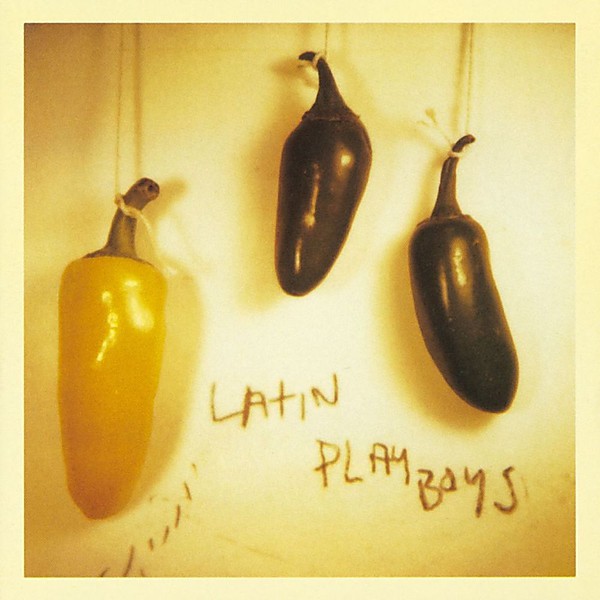 LATIN
PLAY BOYS